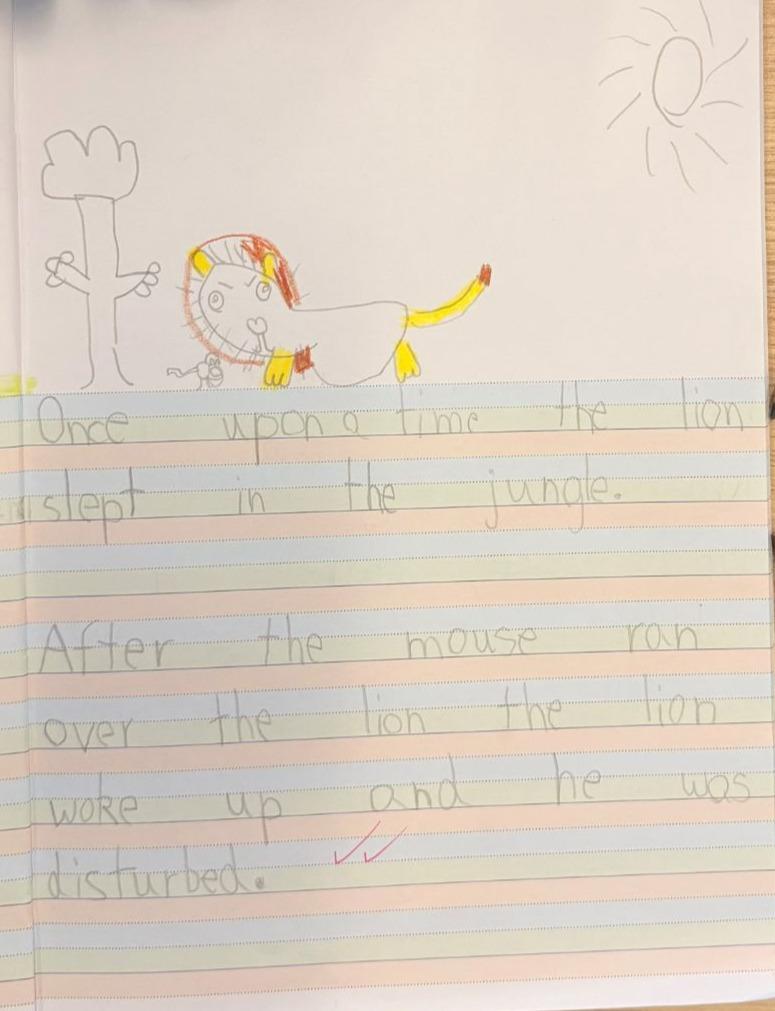 Once upon a time the lion
slept in the jungle.
After the mouse ran
over the lion the lion
woke up and he was
disturbed.